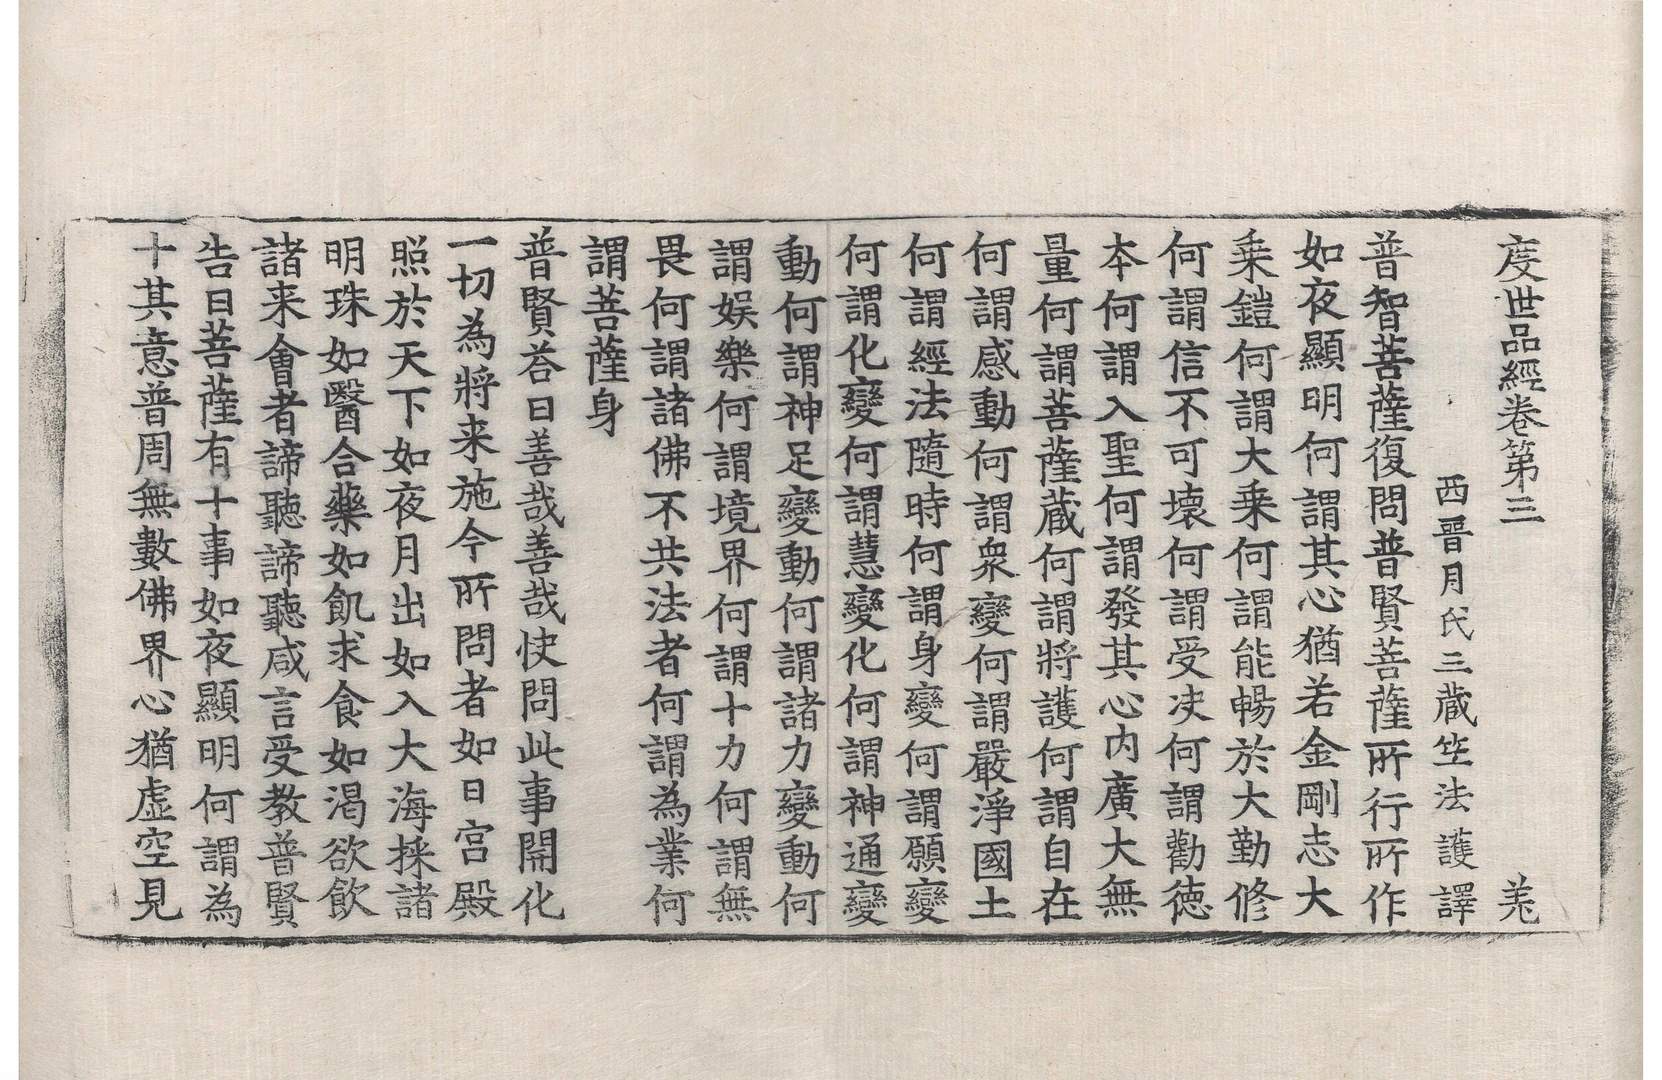 度世品經卷第三　羌
西晉月氏三藏竺法護譯
普智菩薩復問普賢菩薩所行所作
如夜顯明何謂其心猶若金剛志大
乗鎧何謂大乗何謂能暢於大勤修
何謂信不可壊何謂受决何謂勸德
本何謂入聖何謂發其心内廣大無
量何謂菩薩蔵何謂將護何謂自在
何謂感動何謂衆變何謂嚴淨國土
何謂經法隨時何謂身變何謂願變
何謂化變何謂慧變化何謂神通變
動何謂神足變動何謂諸力變動何
謂娱樂何謂境界何謂十力何謂無
畏何謂諸佛不共法者何謂為業何
謂菩薩身
普賢荅曰善哉善哉快問此事開化
一切為將来施今所問者如日宫殿
照於天下如夜月出如入大海採諸
明珠如醫合藥如飢求食如渴欲飲
諸来會者諦聽諦聽咸言受教普賢
告曰菩薩有十事如夜顯明何謂為
十其意普周無數佛界心猶虚空見